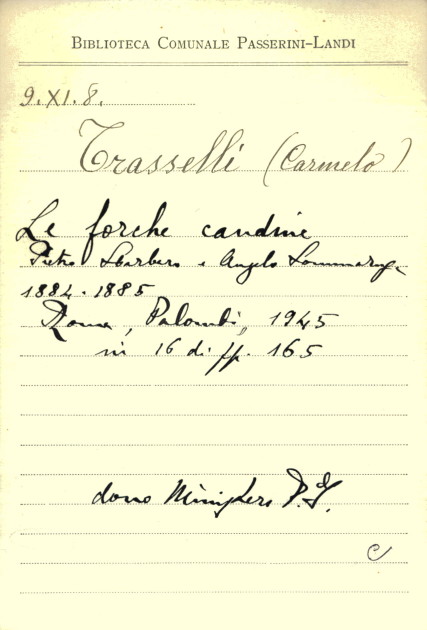 BIBLIOTECA COMUNALE PASSERINI-LANDI
9.XI.8.
Trasselli (Carmelo)
Le forche caudine
Pietro Sbarbaro e Angelo Sommaruga
1884-1885
Roma, Palombi, 1945
in 16 di pp. 165
dono Ministero P.I.
C